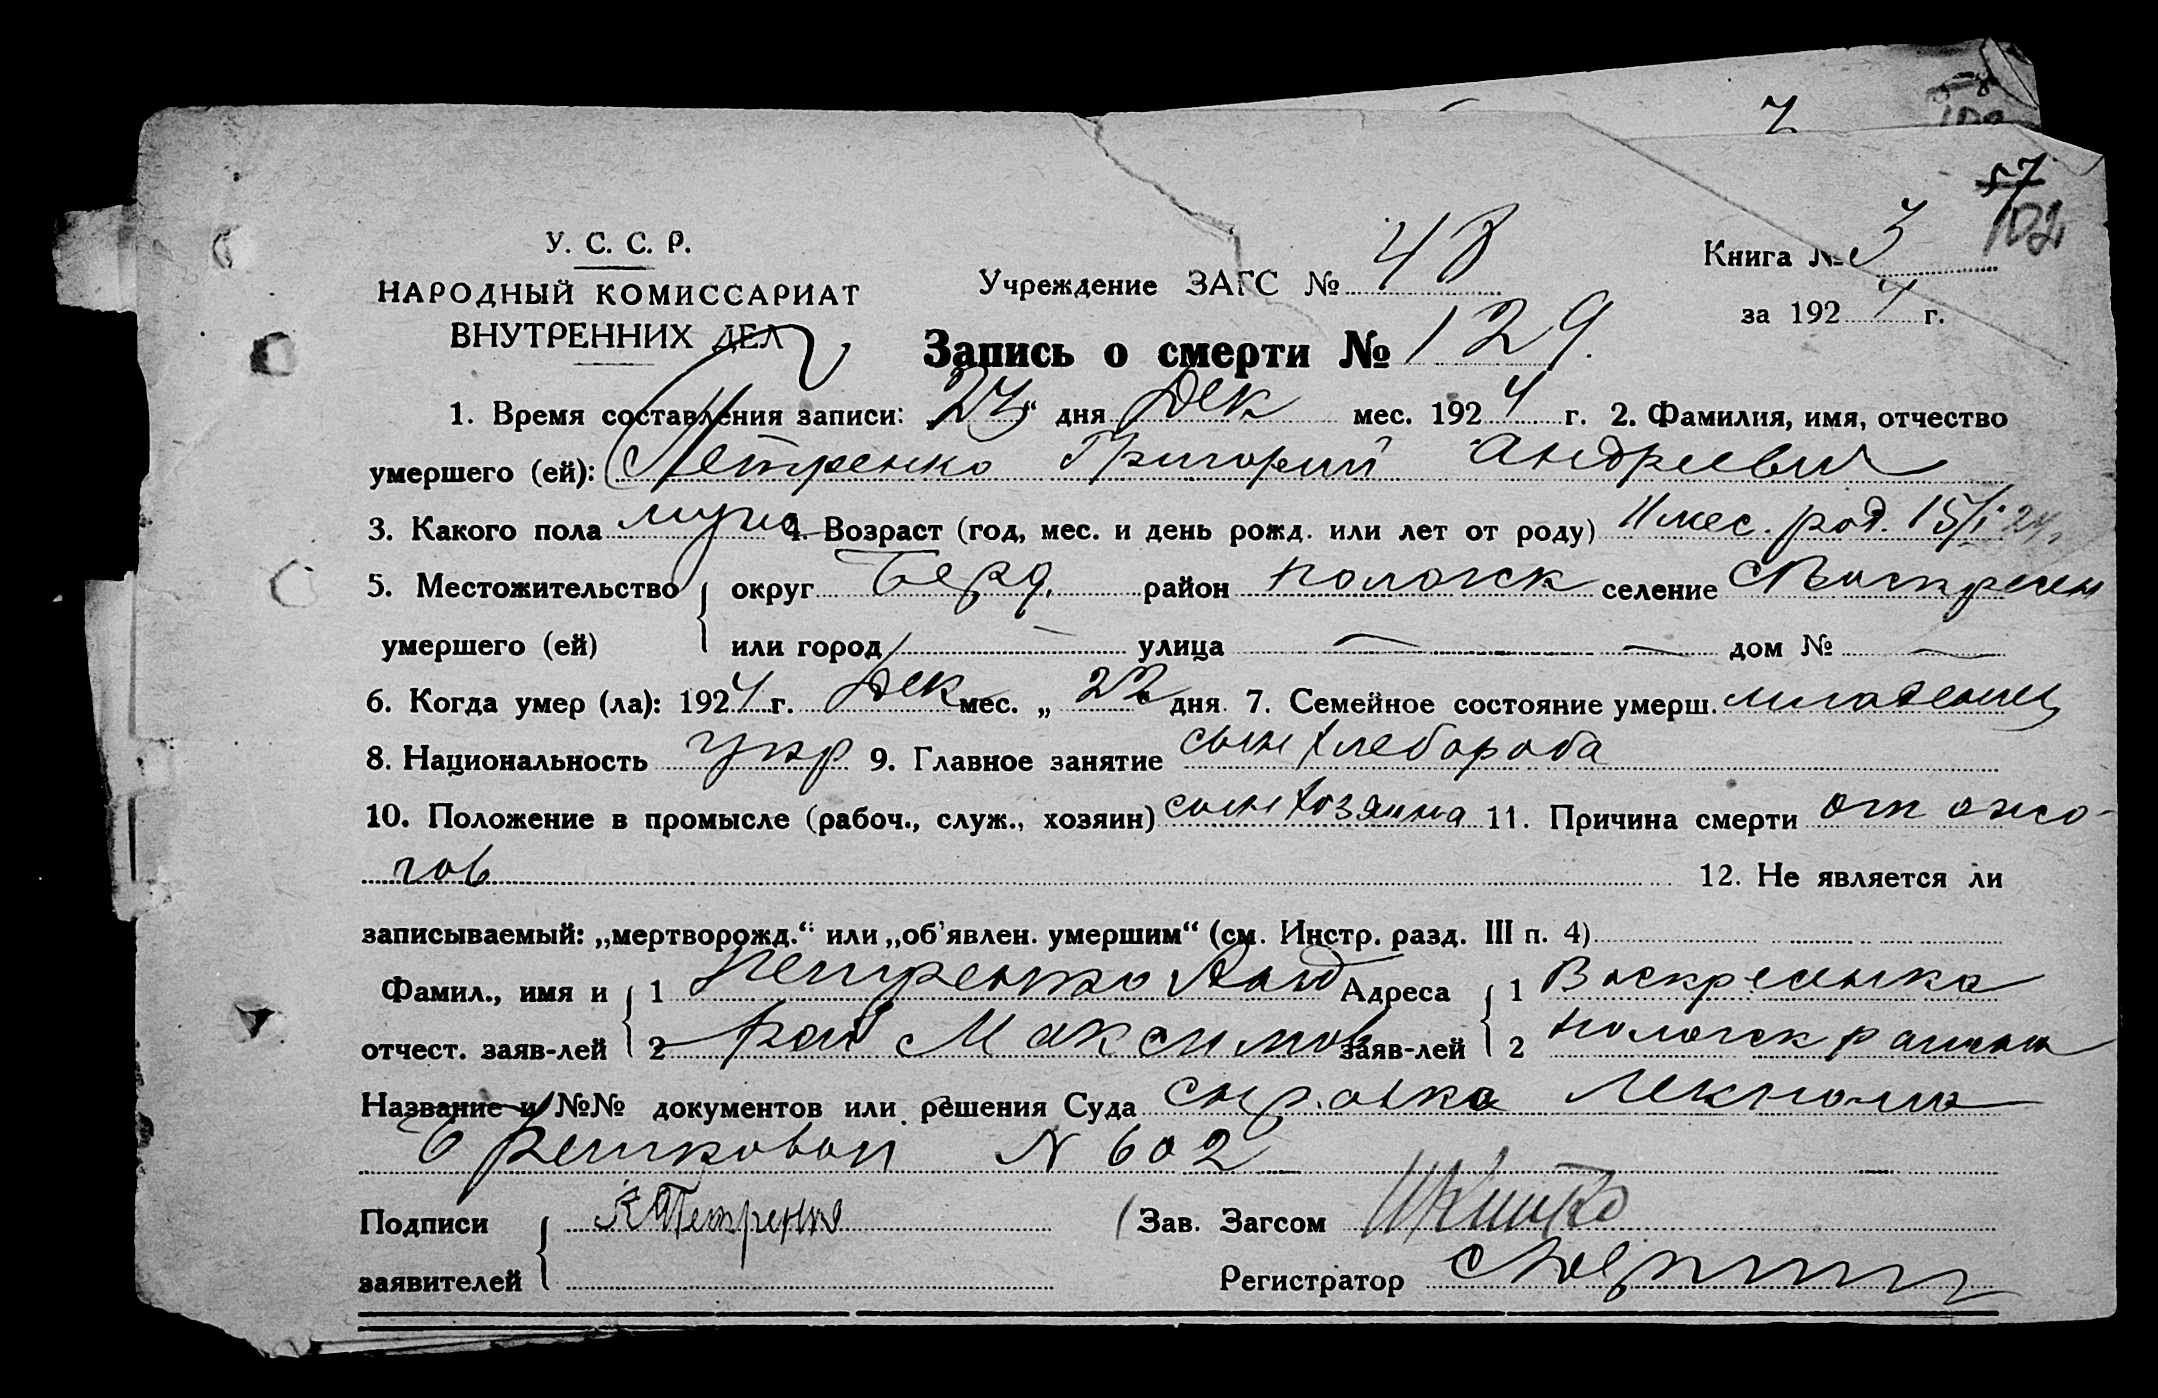 57
102
У. С. С. Р.
НАРОДНЫЙ КОМИССАРИАТ
ВНУТРЕННИХ ДЕЛ
Учреждение ЗАГС № 48
Книга № 3
за 1924 г.
Запись о смерти № 129.
1. Время составления записи: „23“ дня Дек мес. 1924 г. 2. Фамилия, имя, отчество
умершего (ей): Петренко Григорий Андреевич
3. Какого пола муж 4. Возраст (год, мес. и день рожд. или лет от роду) 11 мес. род. 15/I 24.
5. Местожительство округ Берд. район Пологск селение Воскресен
умершего (ей) или город — улица — — дом № —
6. Когда умер (ла): 1924 г. Дек мес. „22“ дня. 7. Семейное состояние умерш. младенец
8. Национальность укр 9. Главное занятие сын хлебороба
10. Положение в промысле (рабоч., служ., хозяин) сын хозяина 11. Причина смерти от ожо-
гов 12. Не является ли
записываемый: „мертворожд.“ или „об'явлен. умершим“ (см. Инстр. разд. III п. 4)
Фамил., имя и 1 Петренко Анд Адреса 1 Воскресенка
отчест. заяв-лей 2 рей Максимов заяв-лей 2 Пологск района
Название и №№ документов или решения Суда справка Лекпома
N 602
Подписи Петренко Зав. Загсом
заявителей Регистратор